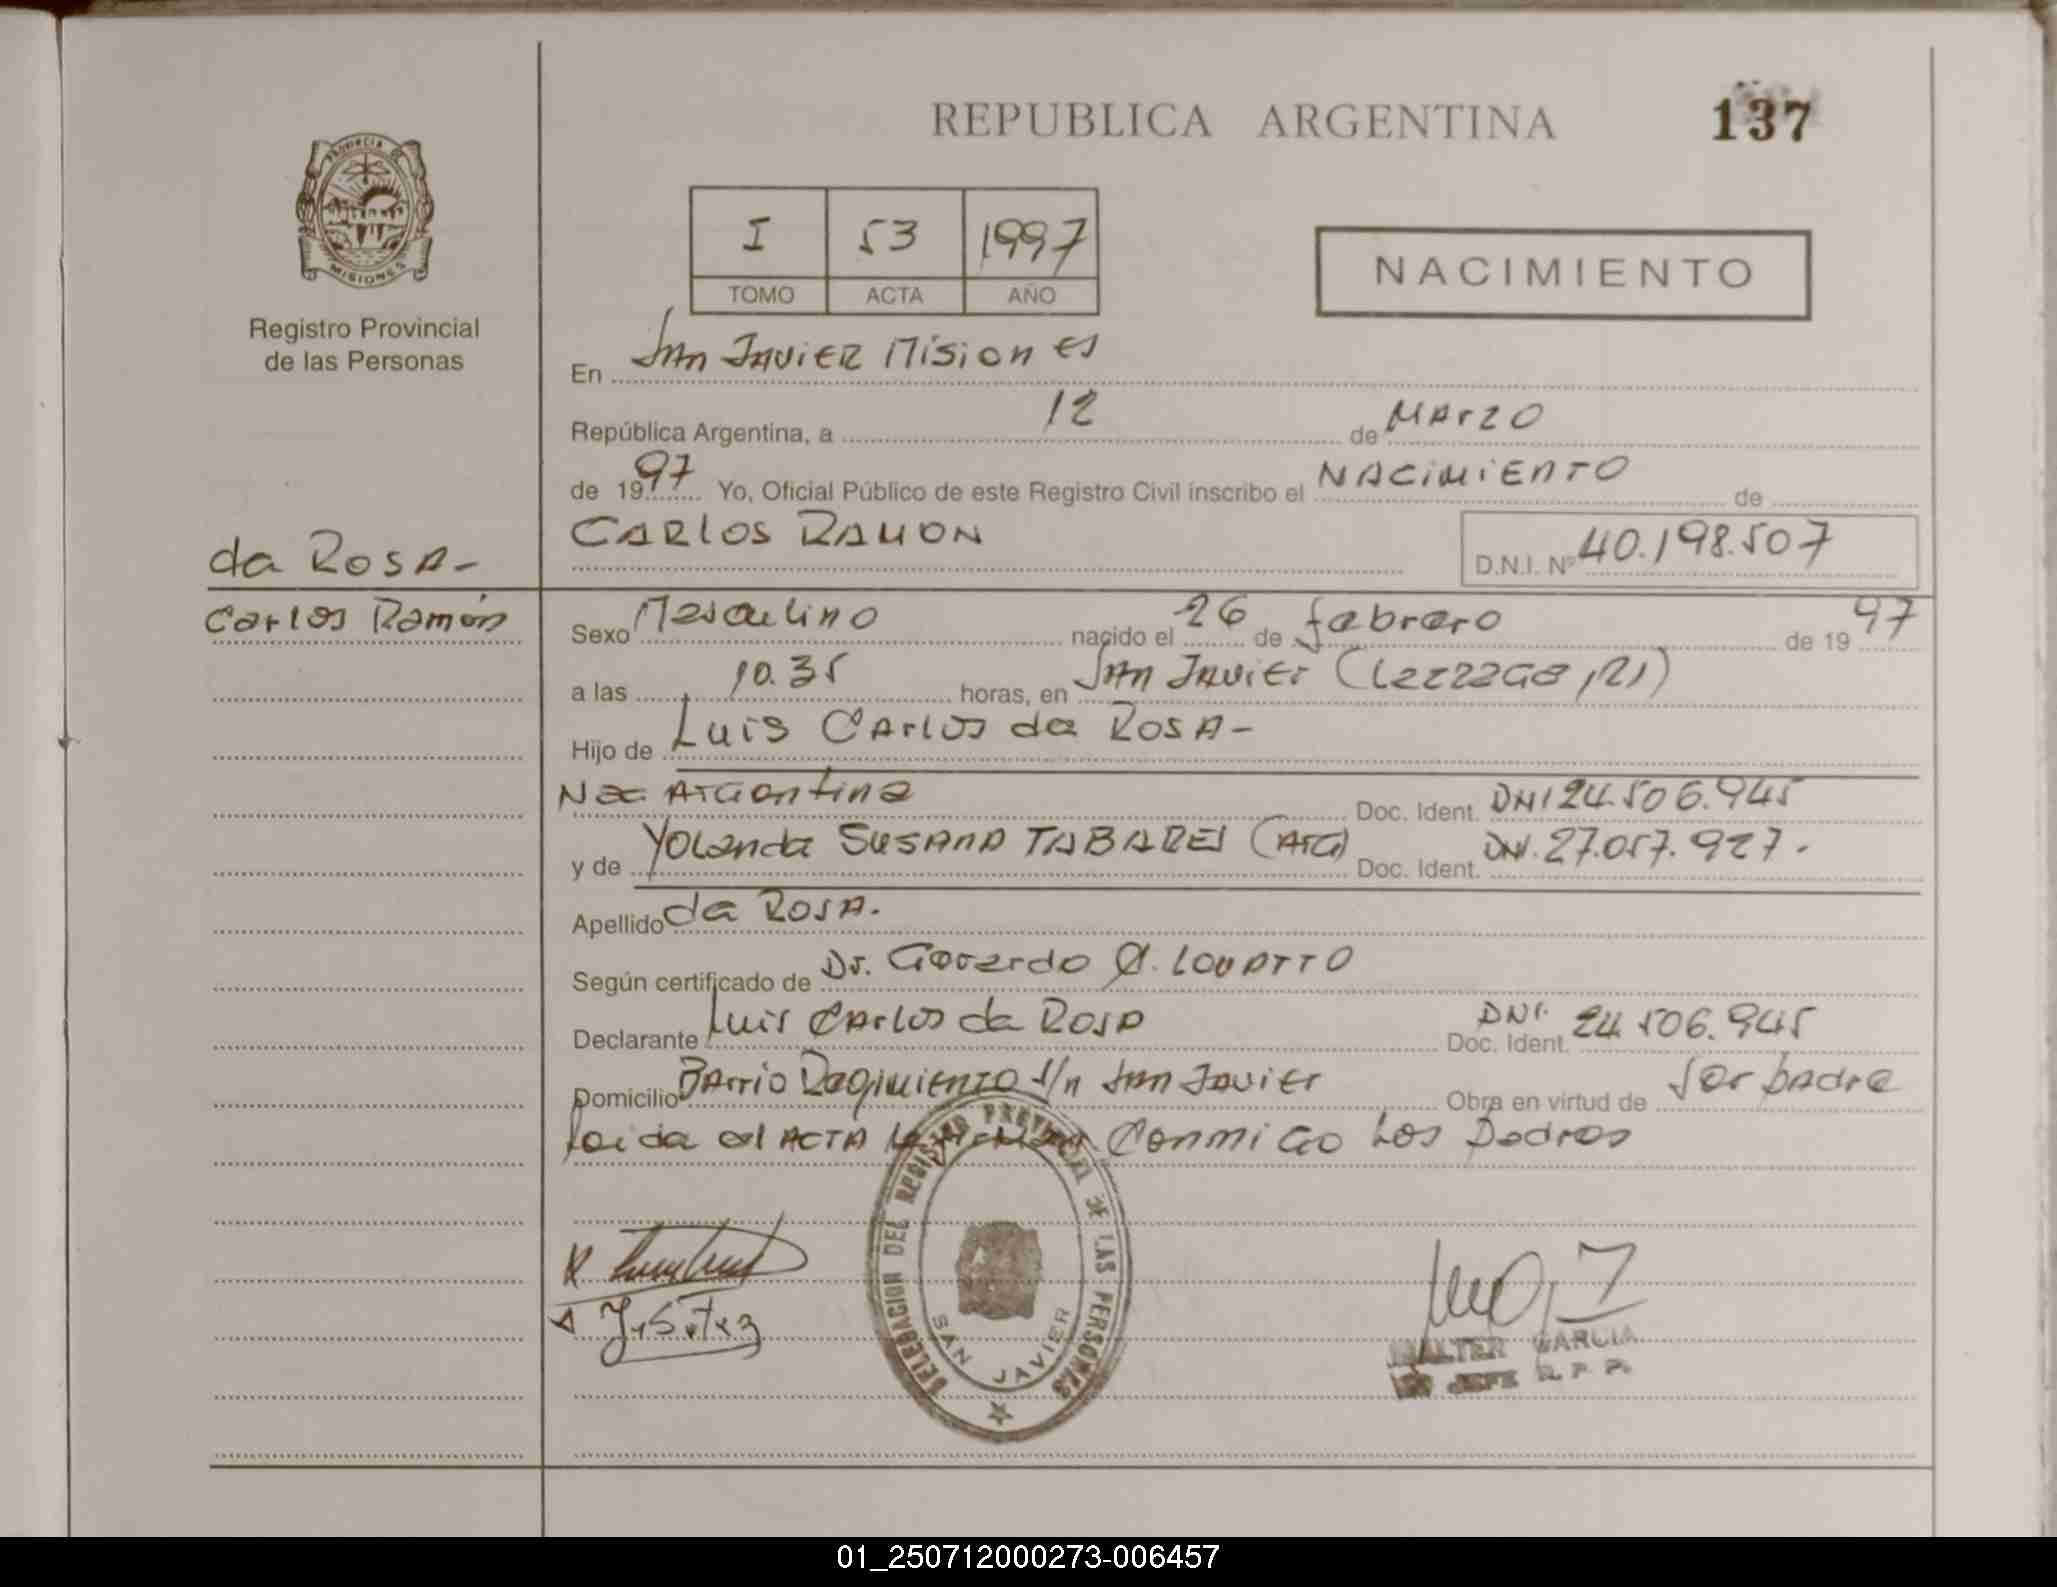 REPUBLICA ARGENTINA
137
PROVINCIA DE
MISIONES
Registro Provincial
de las Personas
I 53 1997
TOMO ACTA AÑO
NACIMIENTO
En San Javier Misiones
República Argentina, a 12 de Marzo
de 1997 Yo, Oficial Público de este Registro Civil inscribo el NACIMIENTO de
CARLOS RAMON
D.N.I. Nº 40.198.507
da ROSA-
Carlos Ramón
Sexo Masculino nacido el 26 de febrero de 1997
a las 10.35 horas, en San Javier
Hijo de Luis Carlos da ROSA-
Nac Argentina Doc. Ident. DNI 24.506.945
y de Yolanda SUSANA TABARES (ARG) Doc. Ident. DNI. 27.057.927.
Apellido da ROSA.
Según certificado de Dr. Gerardo A. LOVATTO
Declarante Luis Carlos da ROSA Doc. Ident. DNI. 24.506.945
Domicilio Barrio Regimiento s/n San Javier Obra en virtud de ser padre
leida el ACTA la firman Conmigo Los Padres
DELEGACION DEL REGISTRO PROVINCIAL DE LAS PERSONAS
SAN JAVIER
WALTER GARCIA
JEFE R. P. P.
01_250712000273-006457